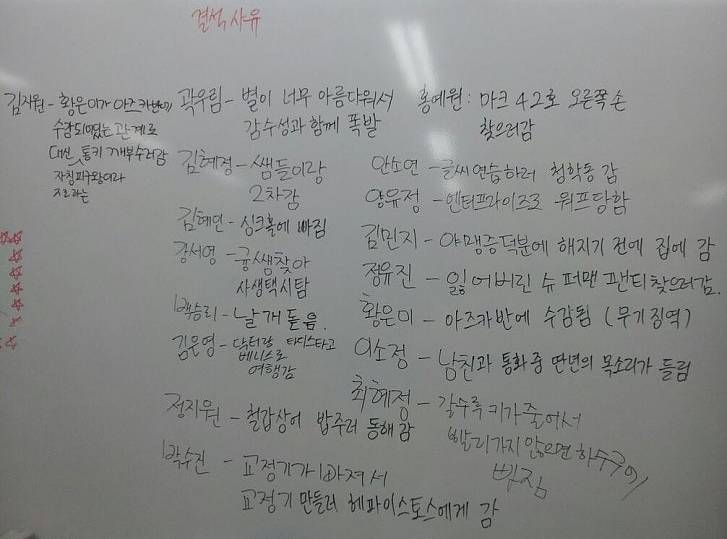 결석사유
김지원 - 황은미가 아즈카반에
수감되어있는 관계로
대신 통키 깨부수러감
자칭 피구왕이라
지르라는
곽우림 - 별이 너무 아름다워서
감수성과 함께 폭발
김혜경 - 쌤들이랑
2차감
김혜민 - 싱크홀에 빠짐
강서영 - 귱쌤찾아
사생택시탐
백승리 - 날개 돋음
김은영 - 닥터랑 타디스타고
베니스로
여행감
정지원 - 철갑상어 밥주러 동해감
박수진 - 교정기가 빠져서
교정기 만들러 헤파이스토스에게 감
홍예원 : 마크 42호 오른쪽 손
찾으러감
안소연 - 글씨연습하러 청학동 감
양유정 - 엔터프라이즈로 워프당함
김민지 - 야맹증덕분에 해지기 전에 집에 감
정유진 - 잃어버린 슈퍼맨 팬티찾으러감.
황은미 - 아즈카반에 수감됨 (무기징역)
이소정 - 남친과 통화 중 딴년의 목소리가 들림
최혜정 - 갈수록 키가 줄어서
빨리가지 않으면 하수구에
빠짐